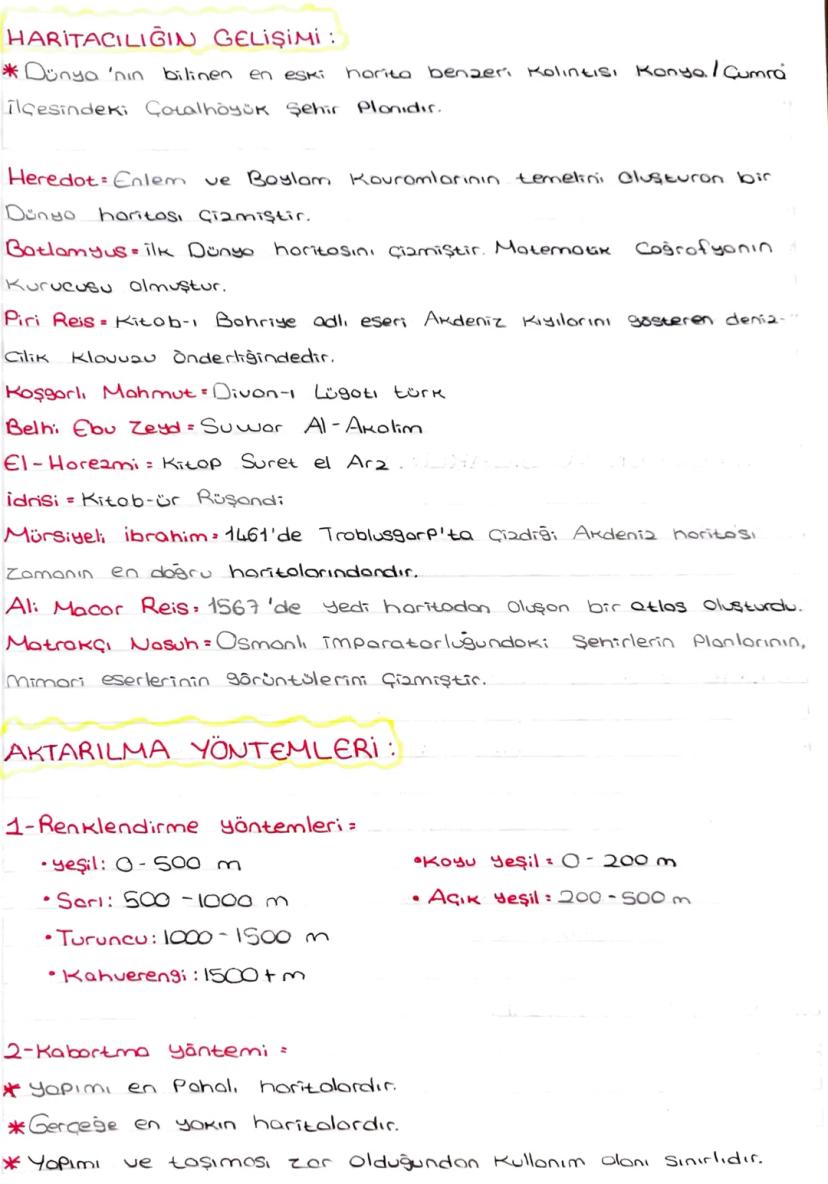 HARİTACILIĞIN GELİŞİMİ :
* Dünya'nın bilinen en eski harita benzeri kalıntısı Konya/Çumra
ilçesindeki Çatalhöyük şehir planıdır.
Heredot = Enlem ve Boylam kavramlarının temelini oluşturan bir
Dünya haritası çizmiştir.
Batlamyus = ilk Dünya haritasını çizmiştir. Matematik Coğrafyanın
kurucusu olmuştur.
Piri Reis = Kitab-ı Bahriye adlı eseri Akdeniz kıyılarını gösteren deniz-
cilik klavuzu önderliğindedir.
Kaşgarlı Mahmut = Divan-ı Lügati türk
Belhi Ebu Zeyd = Suwar Al-Akalim
El-Harezmi = Kitap Suret el Arz
idrisi = Kitab-ür Rüşandi
Mürsiyeli ibrahim = 1461'de Trablusgarp'ta çizdiği Akdeniz haritası
zamanın en doğru haritalarındandır.
Ali Macar Reis = 1567'de yedi haritadan oluşan bir atlas oluşturdu.
Matrakçı Nasuh = Osmanlı imparatorluğundaki şehirlerin planlarının,
mimari eserlerinin görüntülerini çizmiştir.
AKTARILMA YÖNTEMLERİ :
1-Renklendirme yöntemleri =
• yeşil: 0-500 m
• Koyu yeşil = 0-200 m
• Sarı: 500-1000 m
• Açık yeşil = 200-500 m
• Turuncu: 1000-1500 m
• Kahverengi : 1500+ m
2-Kabartma yöntemi =
* yapımı en pahalı haritalardır.
* Gerçeğe en yakın haritalardır.
* Yapımı ve taşıması zor olduğundan kullanım alanı sınırlıdır.